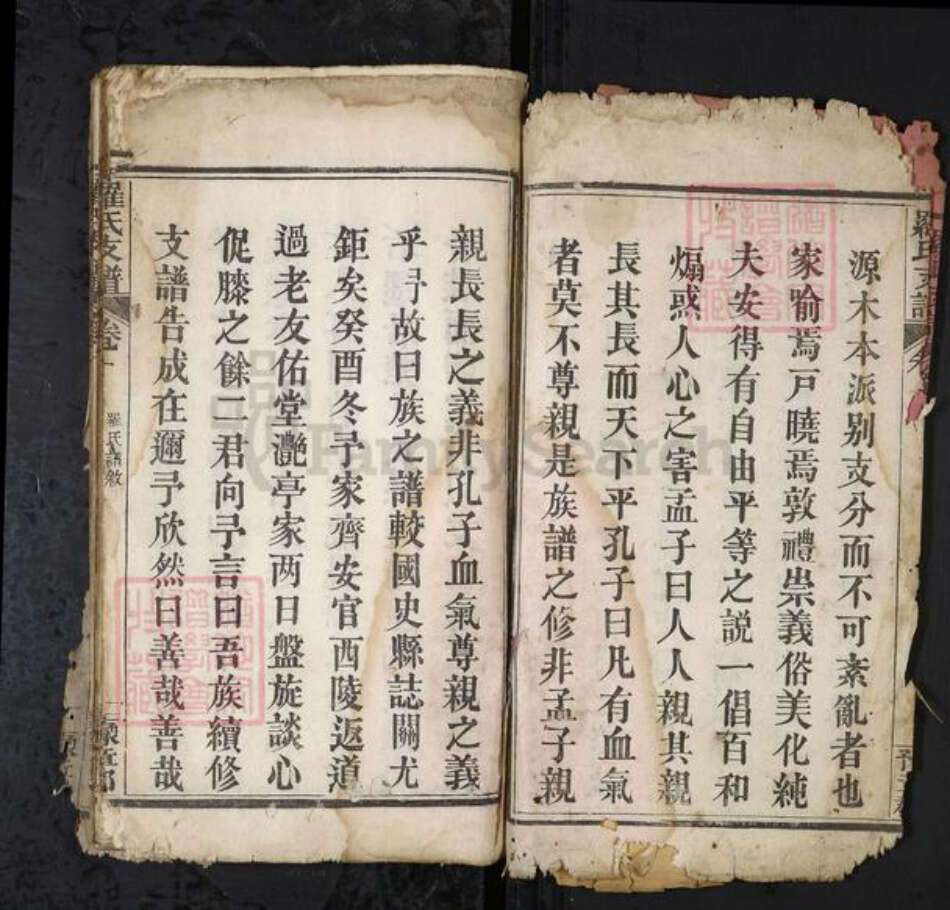 源木本派别支分而不可紊亂者也
家喻焉戸曉焉敦禮崇義俗美化純
夫安得有自由平等之説一倡百和
煽惑人心之害孟子曰人人親其親
長其長而天下平孔子曰凡有血氣
者莫不尊親是族譜之修非孟子親
親長長之義非孔子血氣尊親之義
乎予故曰族之譜較國史縣誌關尤
鉅矣癸酉冬予家齊安官西陵返道
過老友佑堂灔亭家两日盤旋談心
促膝之餘二君向予言曰吾族續修
支譜告成在邇予欣然曰善哉善哉
羅氏支譜
卷一
羅氏譜敘
羅氏支譜
FamilySearch